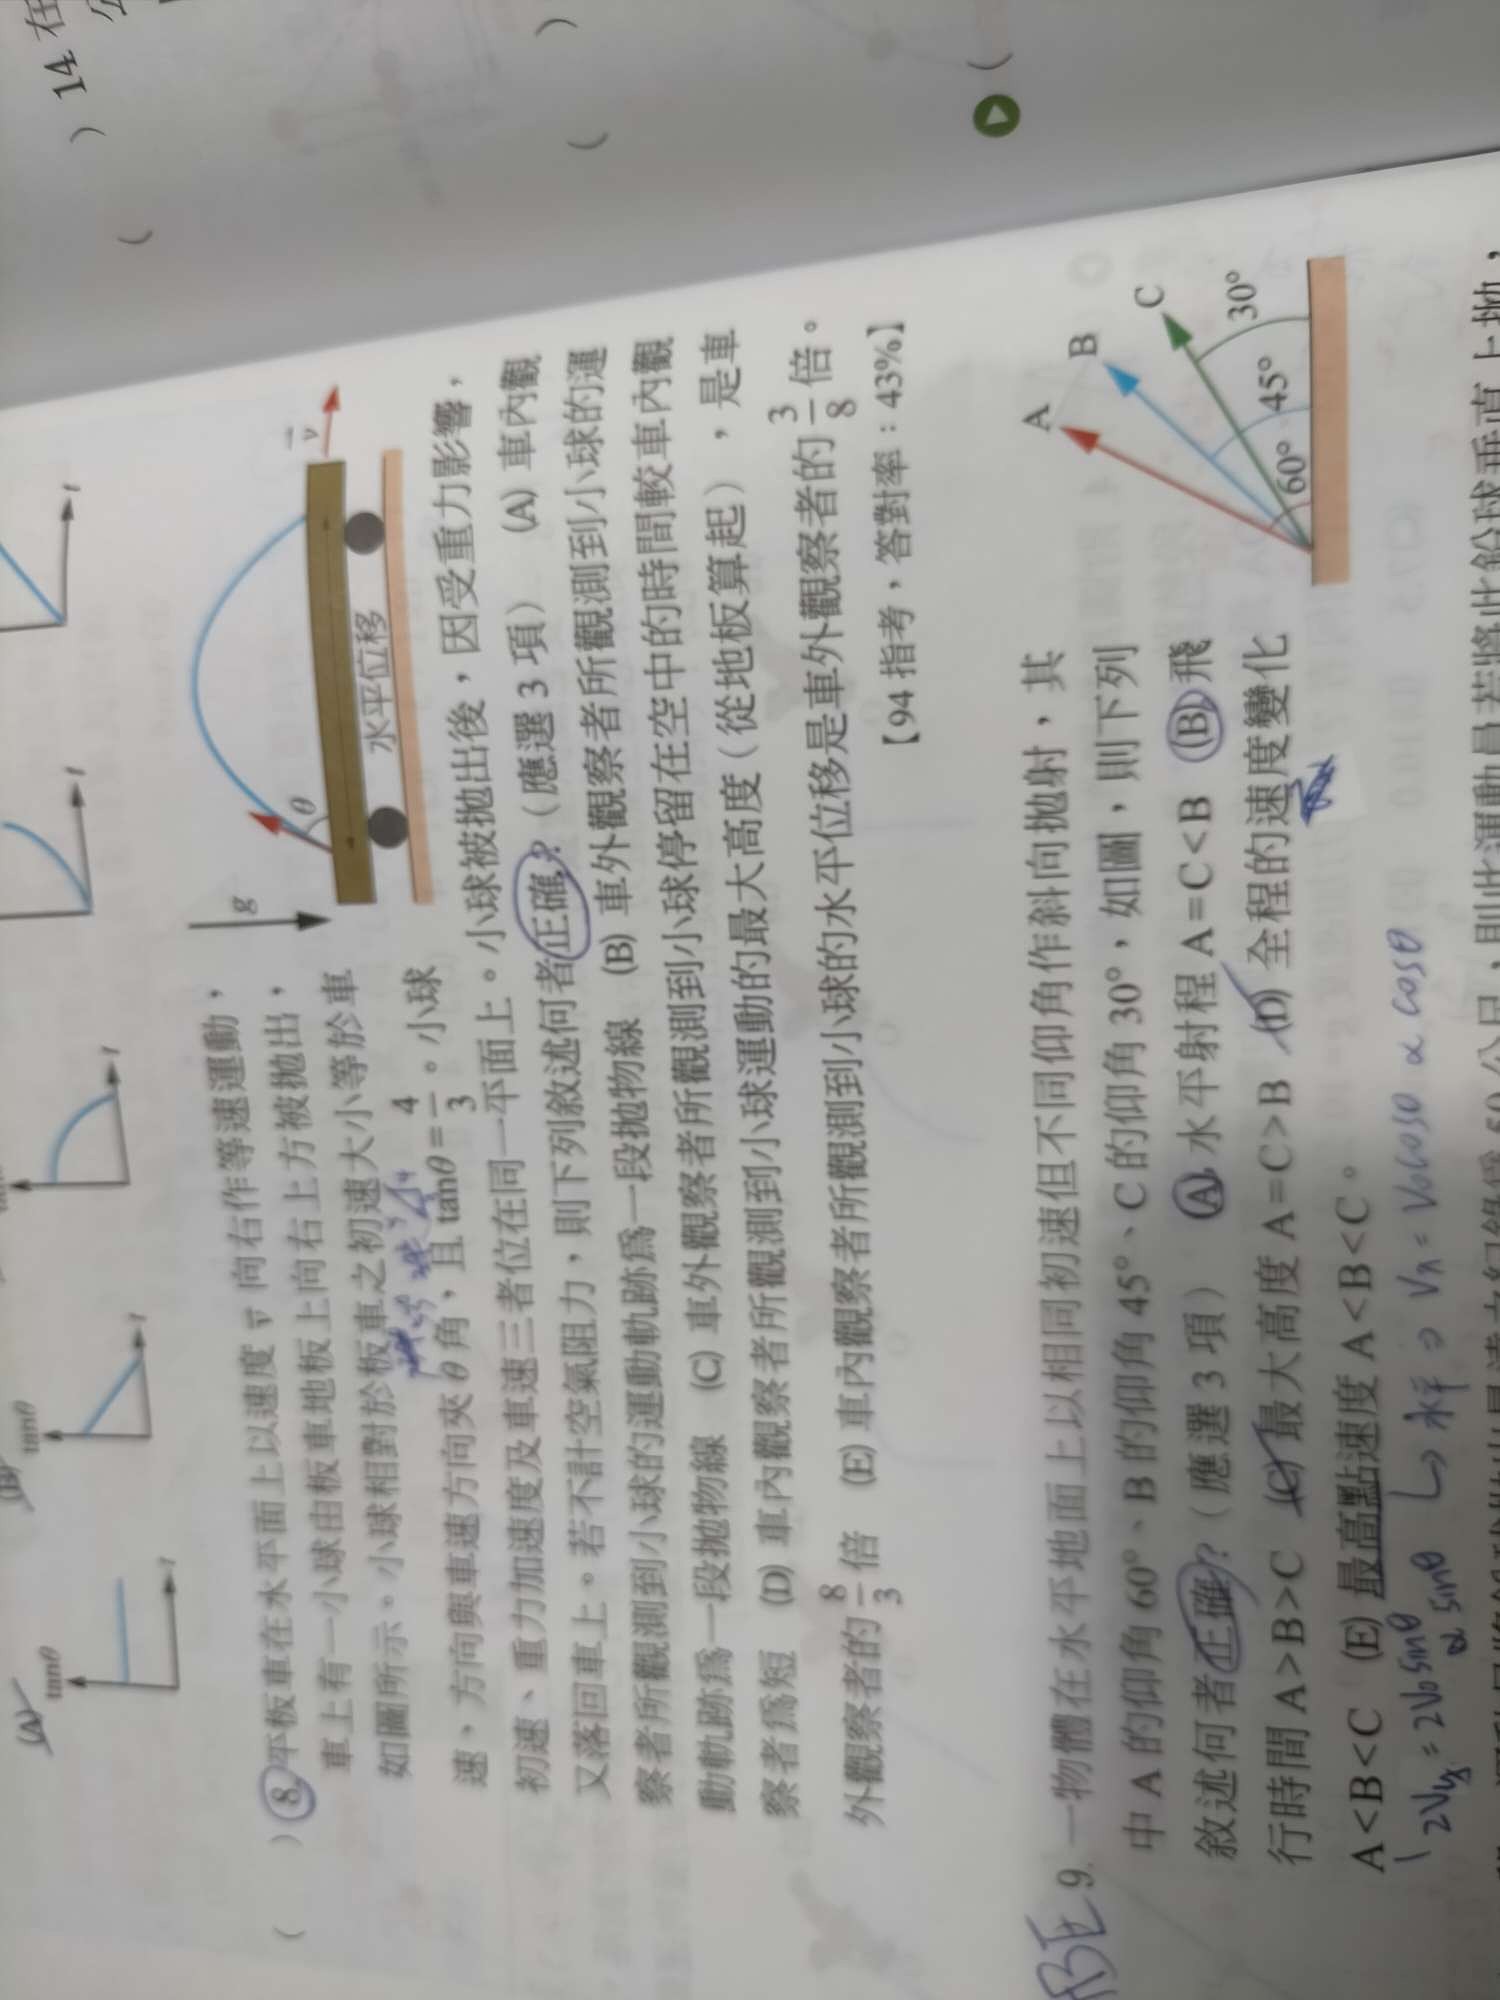 ) 14 在
(A)
tanθ
t
(B)
tanθ
t
t
t
t
( ) 8. 平板車在水平面上以速度 v 向右作等速運動，
車上有一小球由板車地板上向右上方被拋出，
如圖所示。小球相對於板車之初速大小等於車
速、方向與車速方向夾 θ 角，且 tanθ = 4/3。小球
初速、重力加速度及車速三者位在同一平面上。小球被拋出後，因受重力影響，
又落回車上。若不計空氣阻力，則下列敘述何者正確？（應選 3 項） (A) 車內觀
察者所觀測到小球的運動軌跡為一段拋物線 (B) 車外觀察者所觀測到小球的運
動軌跡為一段拋物線 (C) 車外觀察者所觀測到小球停留在空中的時間較車內觀
察者為短 (D) 車內觀察者所觀測到小球運動的最大高度（從地板算起），是車
外觀察者的 8/3 倍 (E) 車內觀察者所觀測到小球的水平位移是車外觀察者的 3/8 倍。
【94 指考，答對率：43%】
g
θ
v
水平位移
ABE 9. 一物體在水平地面上以相同初速但不同仰角作斜向拋射，其
中 A 的仰角 60°、B 的仰角 45°、C 的仰角 30°，如圖，則下列
敘述何者正確？（應選 3 項） (A) 水平射程 A=C<B (B) 飛
行時間 A>B>C (C) 最大高度 A=C>B (D) 全程的速度變化
A<B<C (E) 最高點速度 A<B<C。
A
B
C
60°
45°
30°
2Vy = 2V₀ sinθ
∝ sinθ
↳ 水平 ⇒ Vx = V₀cosθ ∝ cosθ